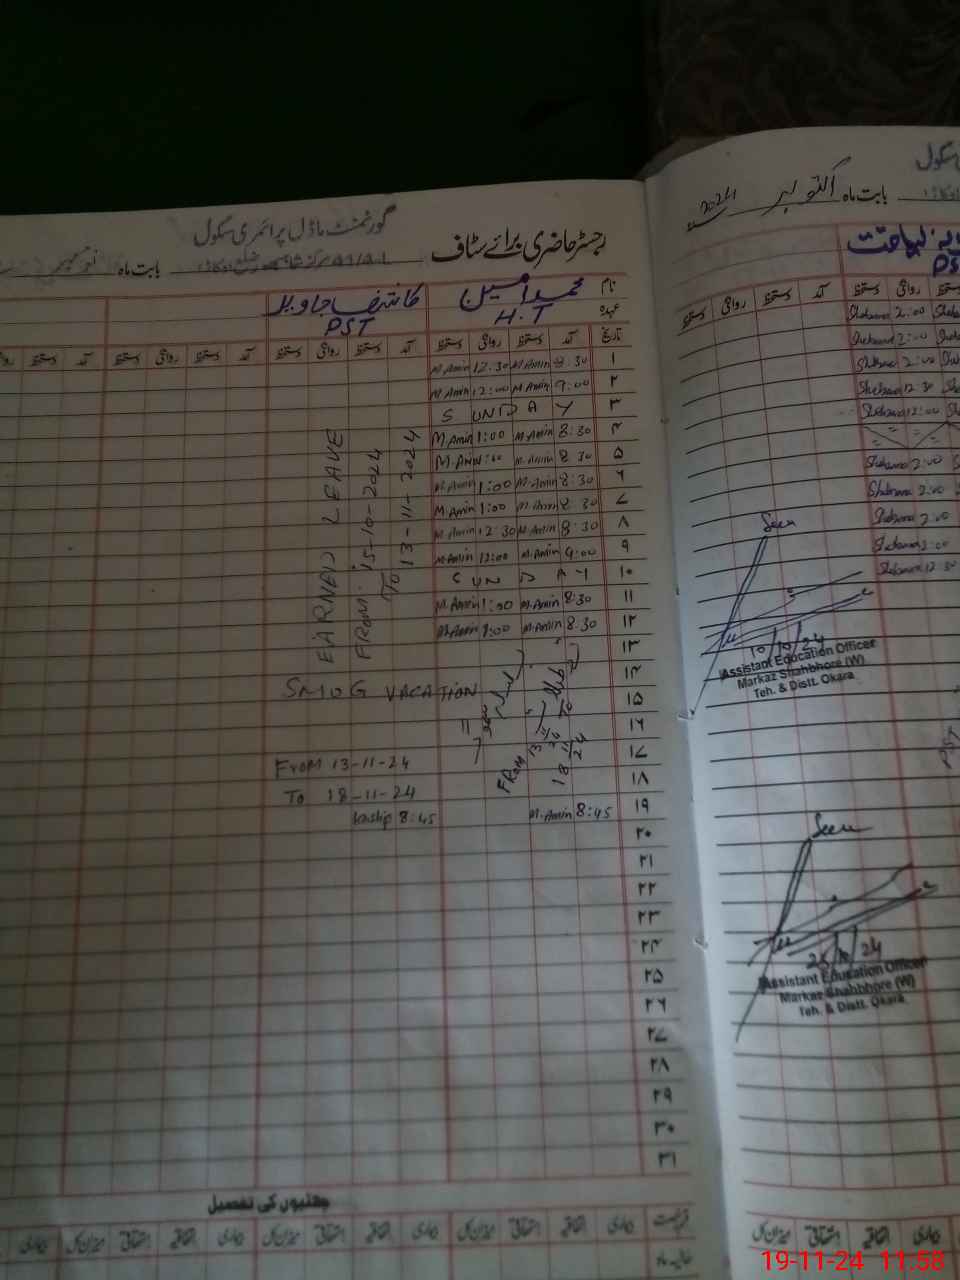 رجسٹر حاضری برائے سٹاف
گورنمنٹ ماڈل پرائمری سکول
بابت ماہ نومبر
نام محمد امین کاشف جاوید
عہدہ H.T PST
تاریخ آمد دستخط روانگی دستخط آمد دستخط روانگی دستخط آمد دستخط روانگی دستخط
۱ 8:30 M.Amin 12:30 M.Amin
۲ 9:00 M.Amin 12:00 M.Amin
۳ SUNDAY
۴ 8:30 M.Amin 1:00 M.Amin
۵ 8:30 M.Amin 1:00 M.Amin
۶ 8:30 M.Amin 1:00 M.Amin
۷ 8:30 M.Amin 1:00 M.Amin
۸ 8:30 M.Amin 12:30 M.Amin
۹ 9:00 M.Amin 12:00 M.Amin
۱۰ SUNDAY
۱۱ 8:30 M.Amin 1:00 M.Amin
۱۲ 8:30 M.Amin 1:00 M.Amin
۱۳
۱۴
۱۵
۱۶
۱۷
۱۸
۱۹ M.Amin 8:45
EARNED LEAVE
FROM: 15-10-2024
To 13-11-2024
SMOG VACATION
From 13-11-24
To 18-11-24
FROM 13/11/24
To 18/11/24
8:45
۲۰
۲۱
۲۲
۲۳
۲۴
۲۵
۲۶
۲۷
۲۸
۲۹
۳۰
۳۱
چھٹیوں کی تفصیل
قسم رخصت رعایتی اتفاقیہ استحقاقی میزان کل رعایتی اتفاقیہ استحقاقی میزان کل رعایتی اتفاقیہ استحقاقی میزان کل
سکول
بابت ماہ اکتوبر 2024
PST
دستخط روانگی دستخط آمد دستخط روانگی دستخط
Shabana 2:00
Shabana 2:00
Shabana 2:00
Shabana 12:30
Shabana 12:00
Shabana 2:00
Shabana 2:00
Shabana 2:00
Shabana 2:00
Shabana 12:30
Seen
10/10/24
Assistant Education Officer
Markaz Shahbhore (W)
Teh. & Distt. Okara
Seen
Assistant Education Officer
Markaz Shahbhore (W)
Teh. & Distt. Okara
رعایتی اتفاقیہ استحقاقی میزان کل
19-11-24 11:58